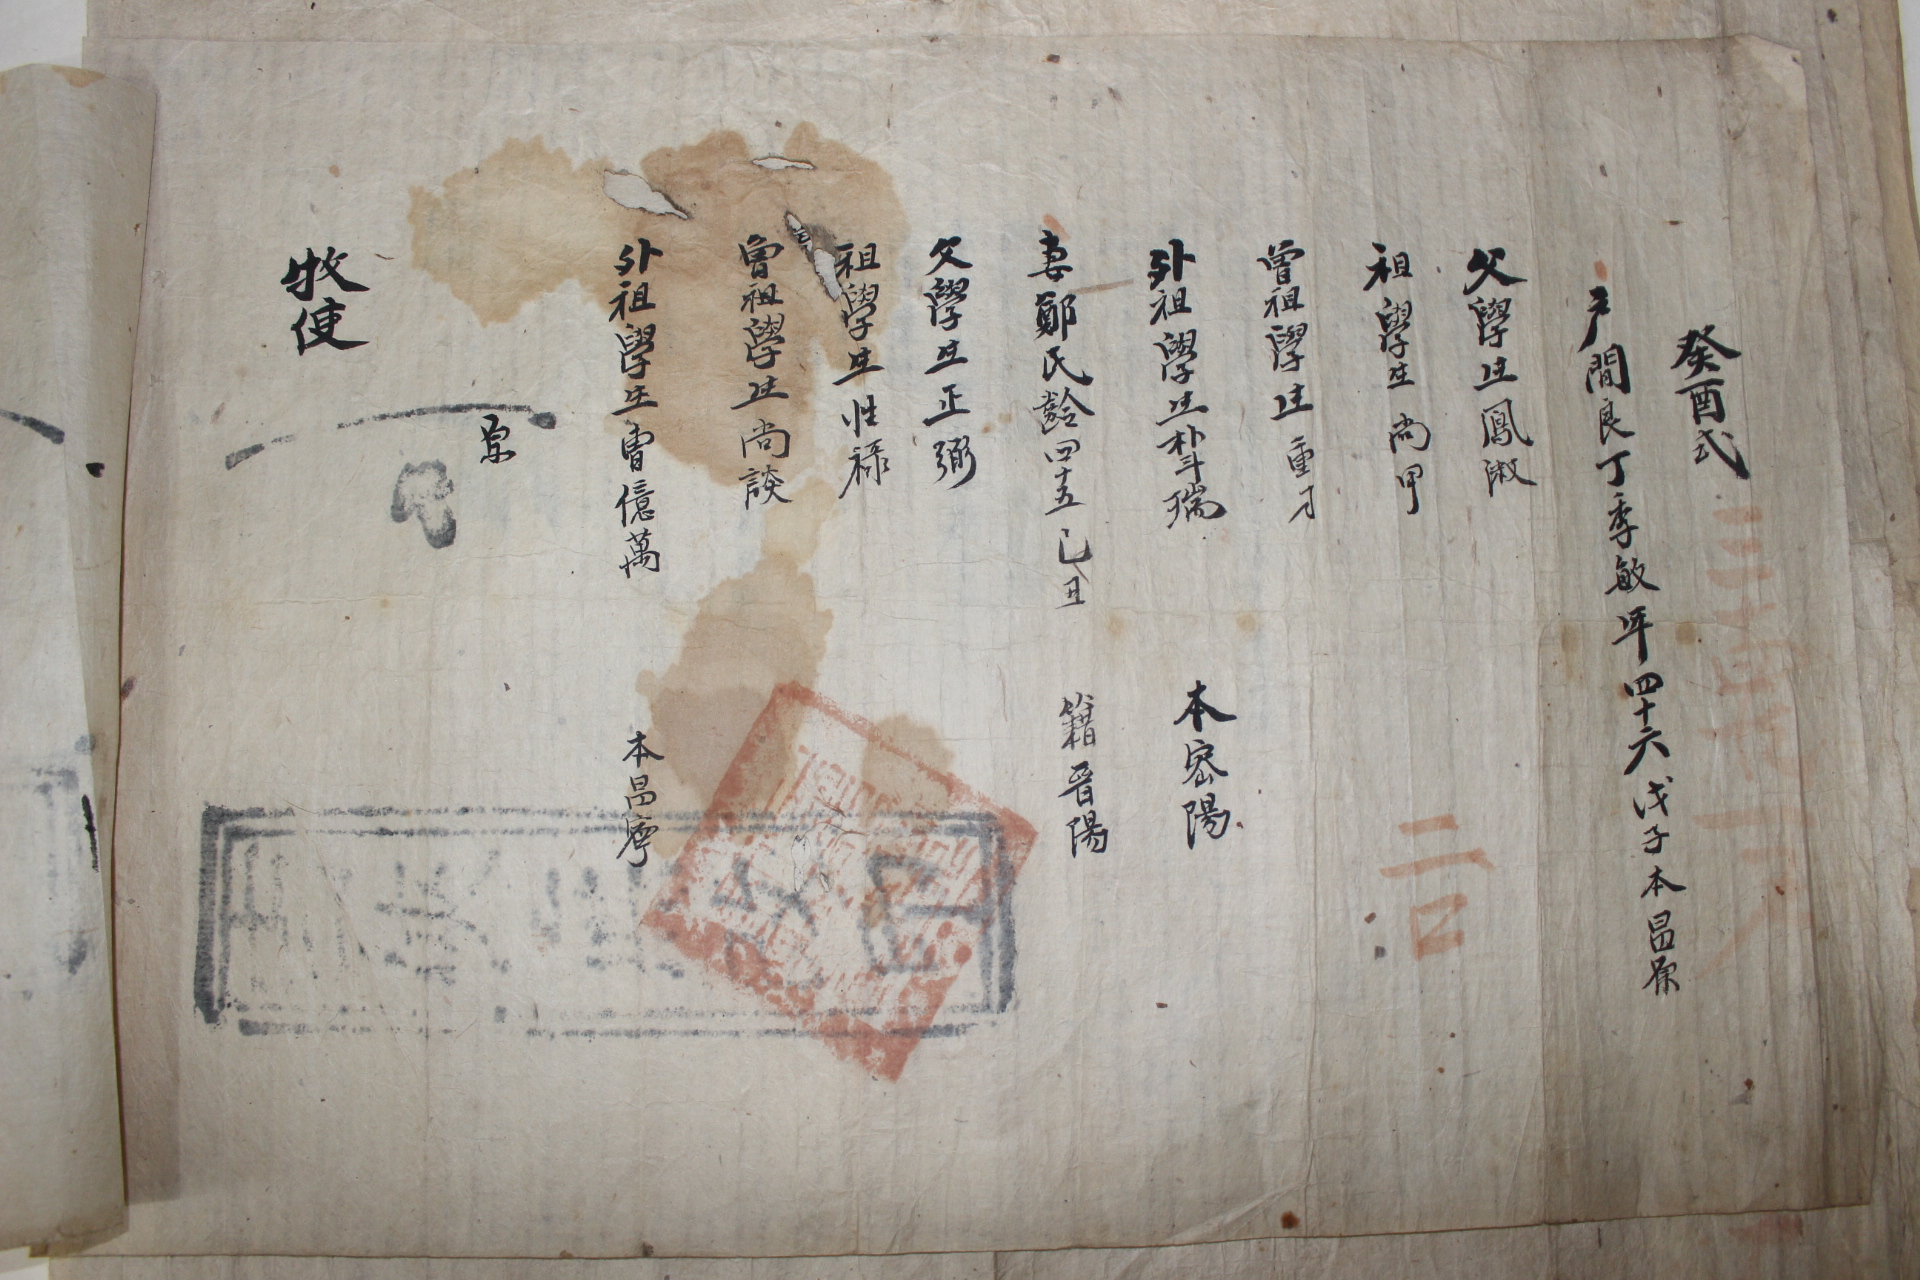 癸酉式
戶閑良丁季敏年四十六戊子本昌原
父學生鳳淑
祖學生尚甲
曾祖學生重
外祖學生朴斗瑞 本密陽
妻鄭氏齡四十五己丑 籍晋陽
父學生正弼
祖學生性祿
曾祖學生尚談
外祖學生曺億萬 本昌寧
牧使
二口